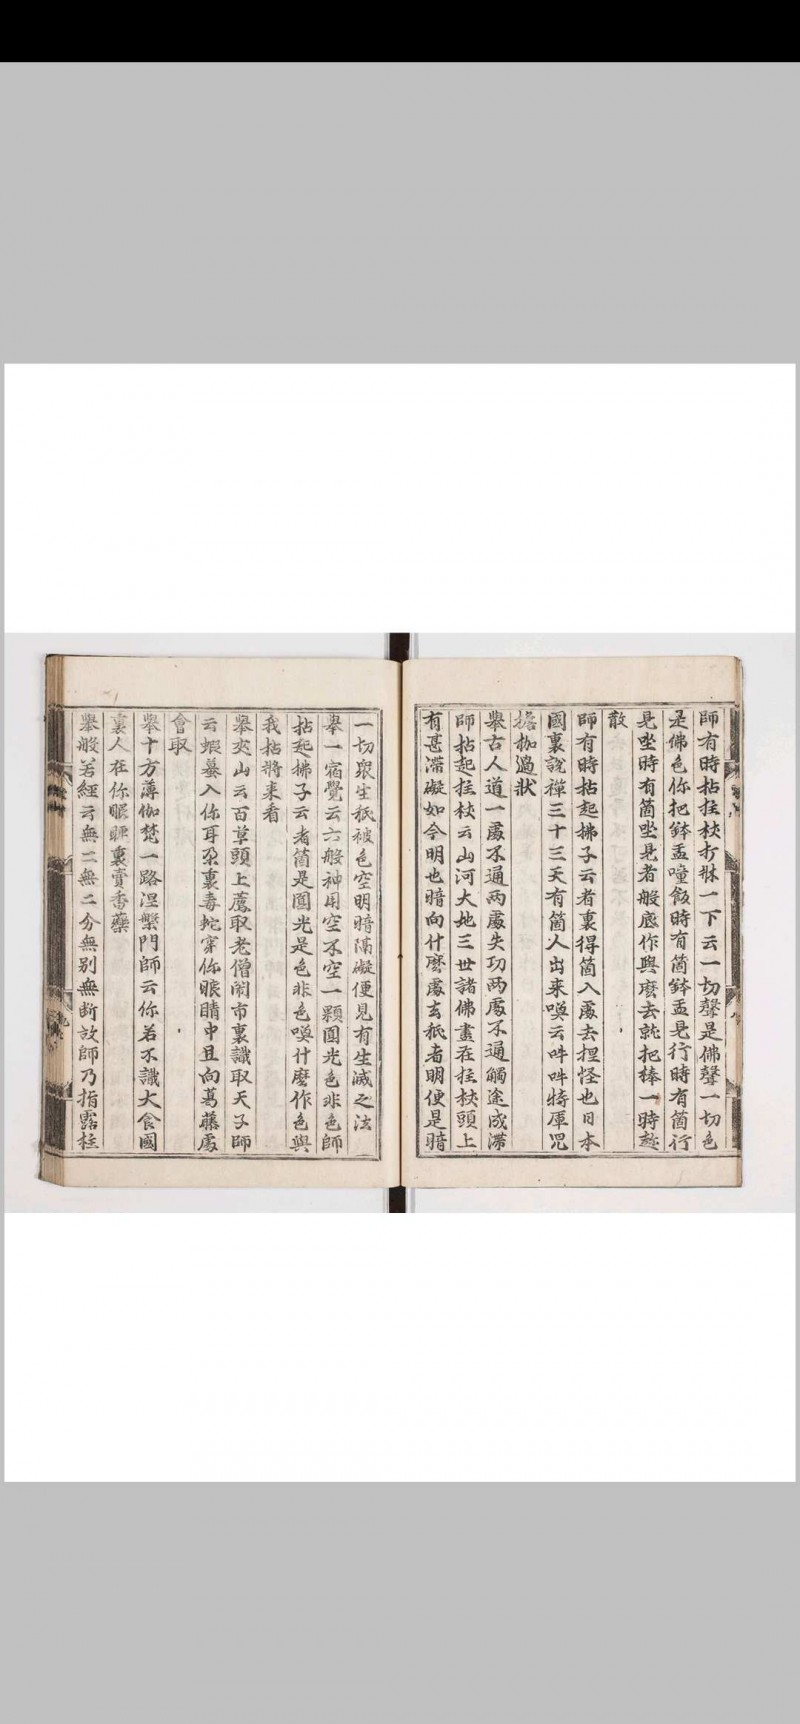 師有時拈拄杖打牀一下云一切聲是佛聲一切色
是佛色你把鉢盂噇飯時有箇鉢盂見行時有箇行
見坐時有箇坐見者般底作與麼去就把棒一時趂
散
師有時拈起拂子云者裏得箇入處去捏怪也日本
國裏說禪三十三天有箇人出来喚云吽吽特庫兒
擔枷過狀
舉古人道一處不通兩處失功兩處不通觸途成滯
師拈起拄杖云山河大地三世諸佛盡在拄杖頭上
有甚滯礙如今明也暗向什麼處去秖者明便是暗
一切衆生秖被色空明暗隔礙便見有生滅之法
舉一宿覺云六般神用空不空一顆圓光色非色師
拈起拂子云者箇是圓光是色非色喚什麼作色與
我拈將来看
舉夾山云百草頭上薦取老僧閙市裏識取天子師
云蝦蟇入你耳朶裏毒蛇穿你眼睛中且向葛藤處
會取
舉十方薄伽梵一路涅槃門師云你若不識大食國
裏人在你眼睫裏賣香藥
舉般若經云無二無二分無别無斷故師乃指露柱